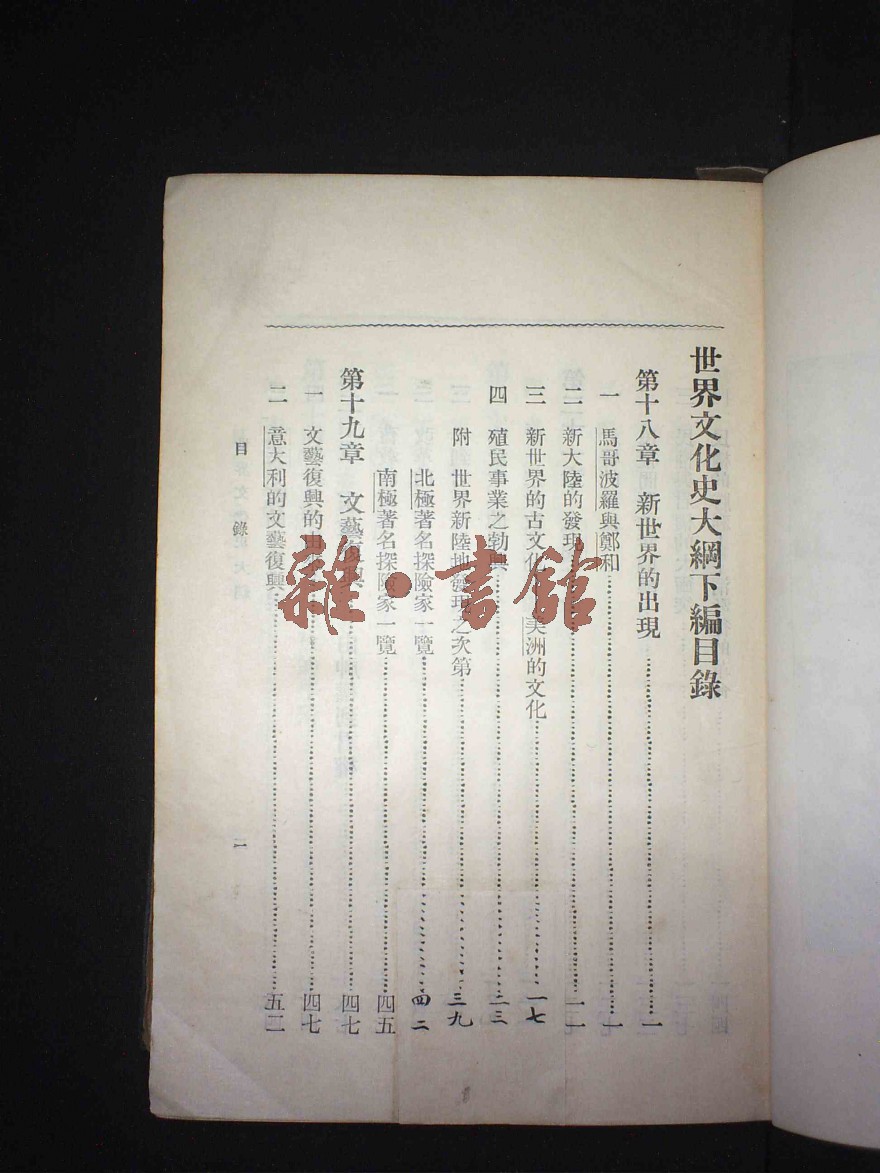 世界文化史大綱下編目錄
第十八章 新世界的出現……一
一 馬哥波羅與鄭和……一
二 新大陸的發現……一一
三 新世界的古文化 美洲的文化……一七
四 殖民事業之勃興……二三
附 世界新陸地發現之次第……三九
北極著名探險家一覽……四二
南極著名探險家一覽……四五
第十九章 文藝復興……四七
一 文藝復興的由……四七
二 意大利的文藝復興……五二
目錄
一
雜·書館